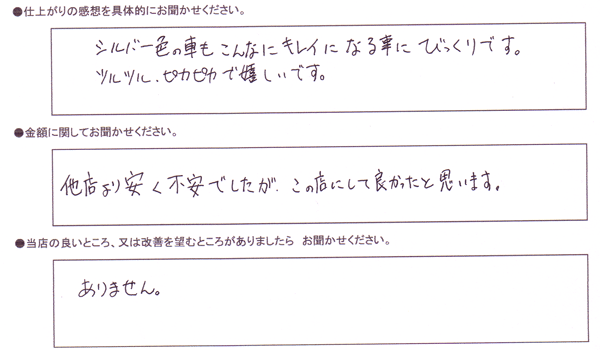 ●仕上がりの感想を具体的にお聞かせください。
シルバー色の車もこんなにキレイになる事にびっくりです。
ツルツル、ピカピカで嬉しいです。
●金額に関してお聞かせください。
他店より安く不安でしたが、この店にして良かったと思います。
●当店の良いところ、又は改善を望むところがありましたら お聞かせください。
ありません。